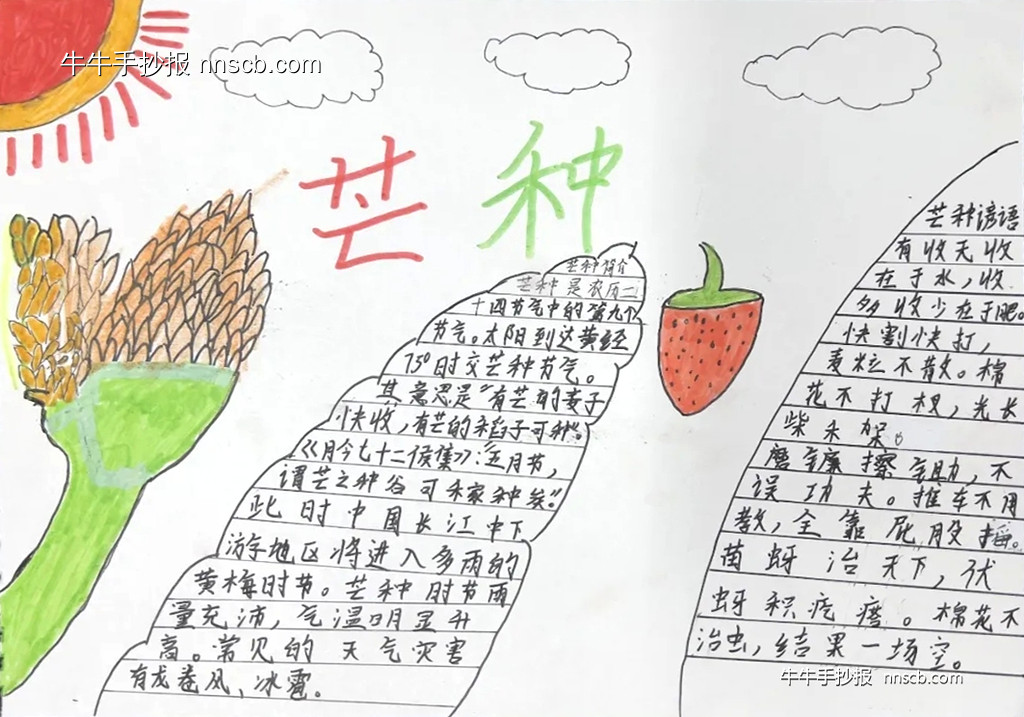 牛牛手抄报 nnscb.com
芒种
芒种简介
芒种是农历二
十四节气中的第九个
节气。太阳到达黄经
75°时交芒种节气。
其意思是"有芒的麦子
快收,有芒的稻子可种"。
《月令七十二侯集》:"五月节,
谓芒之种谷可禾家种矣。"
此时中国长江中下
游字地区将进入多雨的
黄梅时节。芒种时节雨
量充沛,气温明显升
高。常见的天气灾害
有龙卷风、冰雹。
芒种谚语
有收无收
在于水,收
多收少在于肥。
快割快打,
麦粒不散。棉
花不打杈,光长
柴禾架。
磨镰擦锄,不
误功夫。推车不用
教,全靠屁股摇。
苗蚜治天下,伏
蚜积疙瘩。棉花不
治虫,结果一场空。
牛牛手抄报 nnscb.com